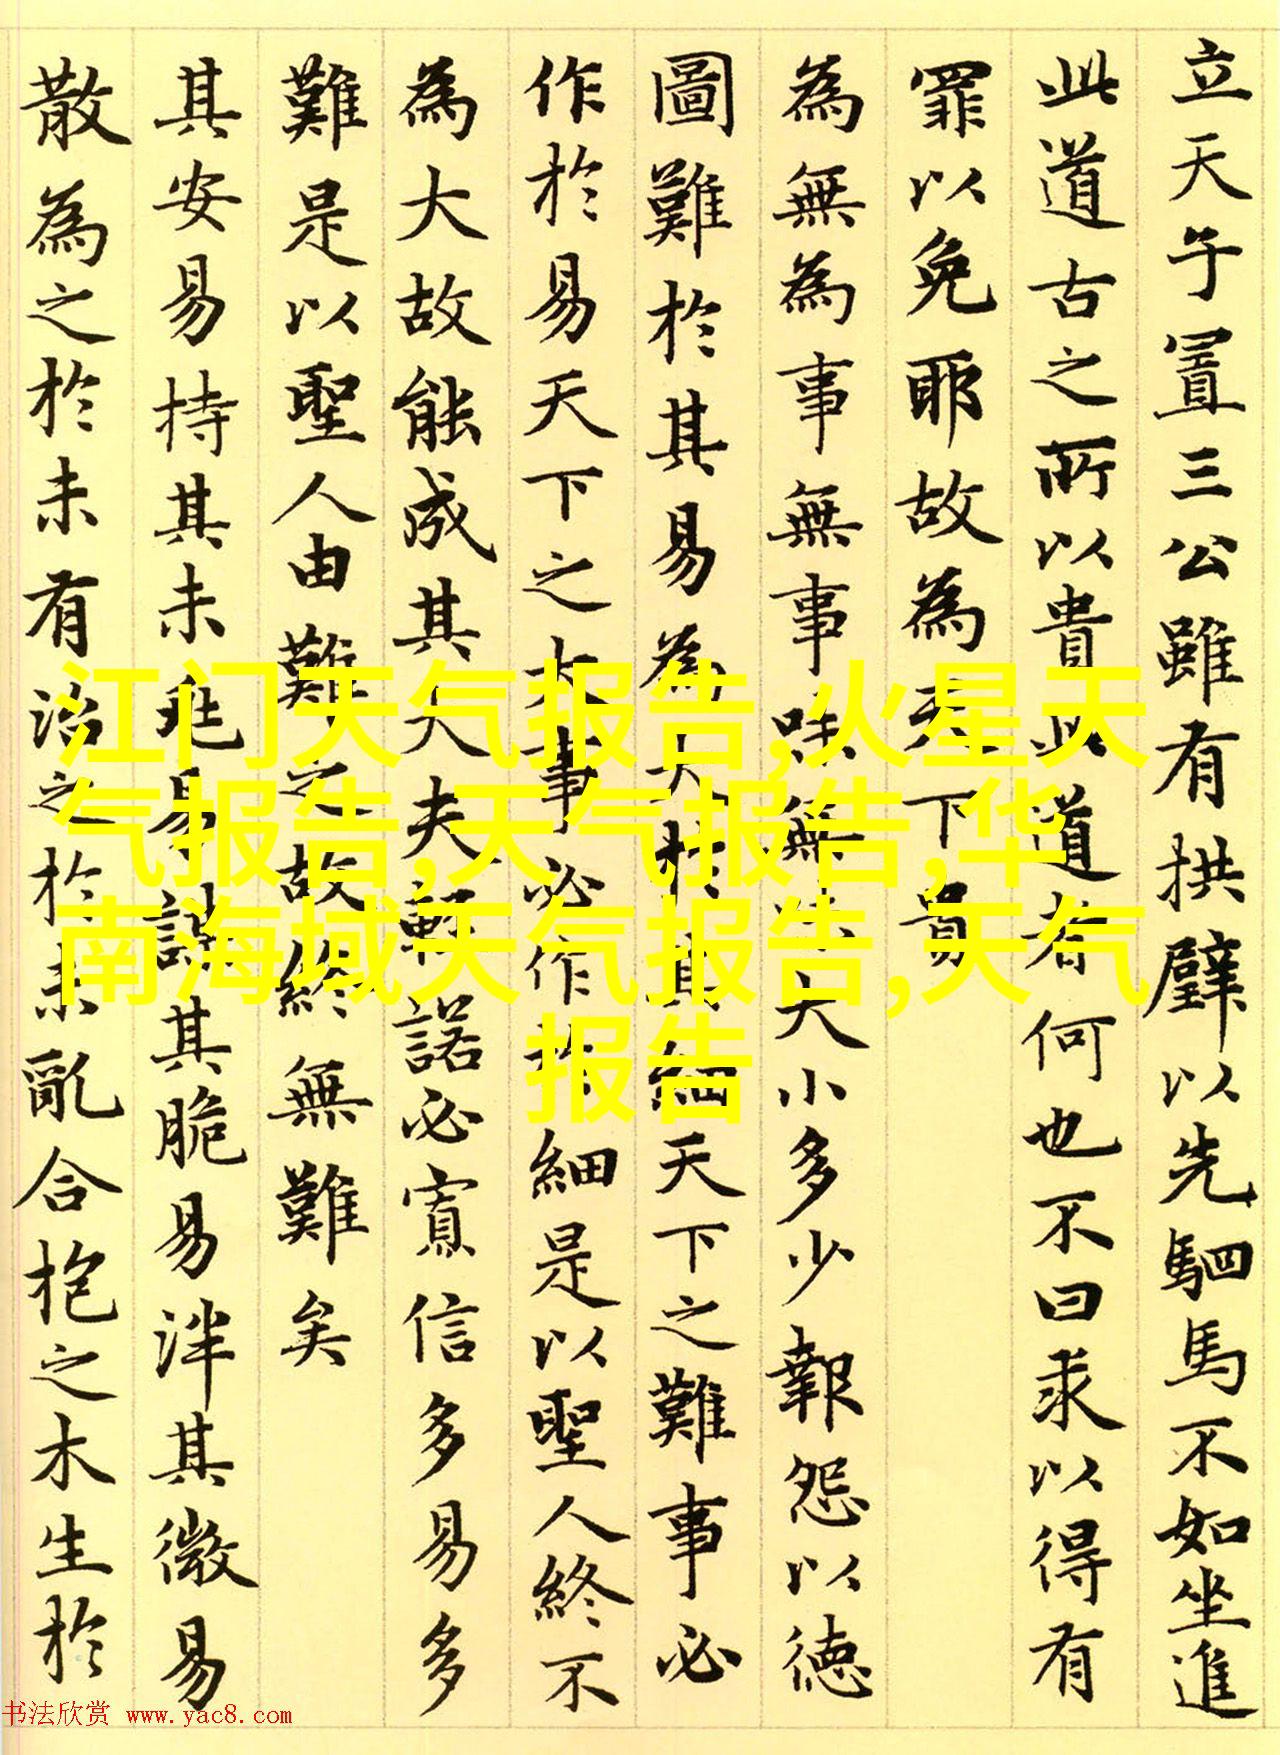 立天子置三公雖有拱璧以先駟馬不如坐進
此道古之所以貴此道者何也不曰求以得有
罪以免耶故為天下貴
為無為事無事味無味大小多少報怨以德
圖難於其易為大於其細天下之難事必
作於易天下之大事必作於細是以聖人終不
為大故能成其大夫輕諾必寡信多易多
難是以聖人由難之故終無難矣
其安易持其未兆易謀其脆易泮其微易
散為之於未有治之於未亂合抱之木生於
江门天气报告,火星天
气报告,天气报告,华
南海域天气报告,天气
报告
书法欣赏 www.yac8.com